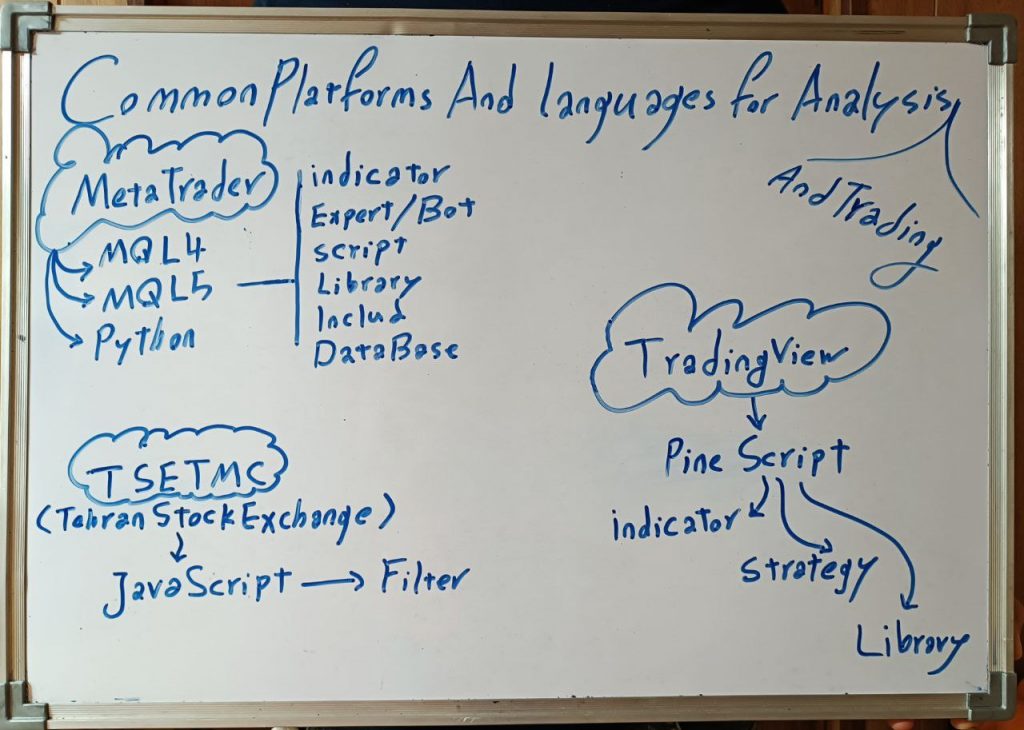 Common Platforms And languages for Analysis
And Trading
MetaTrader
MQL4
MQL5
Python
indicator
Expert/Bot
script
Library
Includ
DataBase
TradingView
Pine Script
indicator
strategy
Library
TSETMC
(Tehran Stock Exchange)
JavaScript → Filter